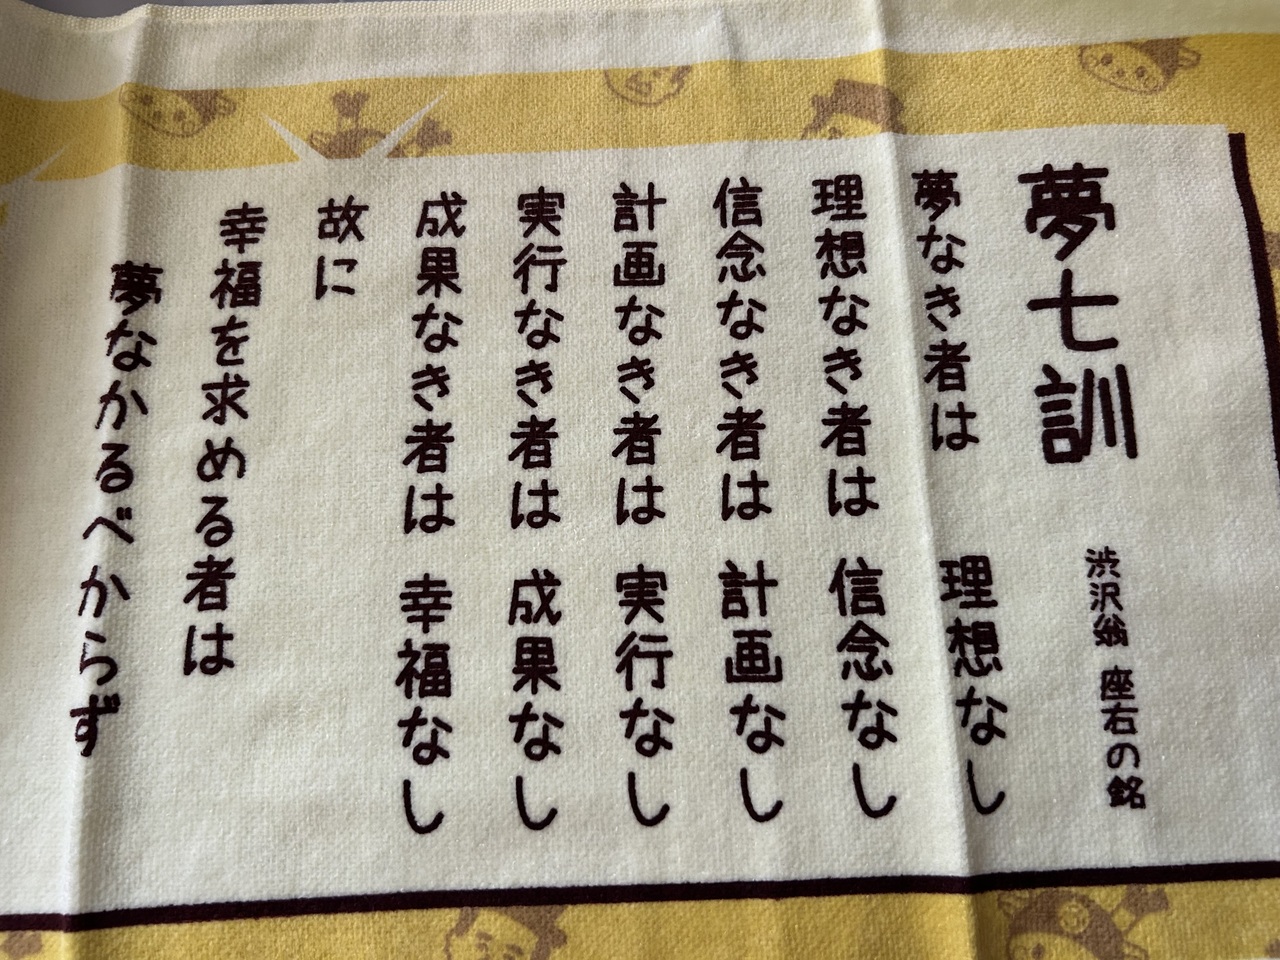 夢七訓 渋沢翁 座右の銘
夢なき者は 理想なし
理想なき者は 信念なし
信念なき者は 計画なし
計画なき者は 実行なし
実行なき者は 成果なし
成果なき者は 幸福なし
故に
幸福を求める者は
夢なかるべからず